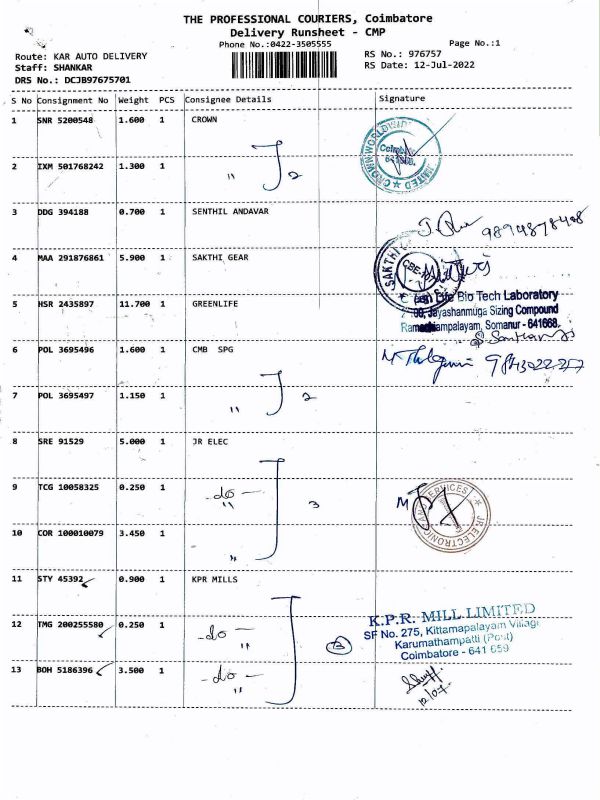 THE PROFESSIONAL COURIERS, Coimbatore
Delivery Runsheet - CMP
Phone No.:0422-3505555
Page No.:1
Route: KAR AUTO DELIVERY
RS No.: 976757
Staff: SHANKAR
RS Date: 12-Jul-2022
DRS No.: DCJB97675701
S No Consignment No Weight PCS Consignee Details Signature
1 SNR 5200548 1.600 1 CROWN
CROWN WORLDWIDE
LIMITED
2 IXM 501768242 1.300 1 " 2
3 DDG 394188 0.700 1 SENTHIL ANDAVAR
4 MAA 291876861 5.900 1 SAKTHI GEAR
SAKTHI
5 HSR 2435897 11.700 1 GREENLIFE
Life Bio Tech Laboratory
Jayashanmuga Sizing Compound
Somanur - 641668.
6 POL 3695496 1.600 1 CMB SPG
7 POL 3695497 1.150 1 " 2
8 SRE 91529 5.000 1 JR ELEC
9 TCG 10058325 0.250 1 -do- " 3
JR ELECTRONIC AND SERVICES
10 COR 100010079 3.450 1 "
11 STY 45392 0.900 1 KPR MILLS
12 TMG 200255580 0.250 1 -do- " 3
K.P.R. MILL LIMITED
SF No. 275, Kittampalayam Village
Karumathampatti (Post)
Coimbatore - 641 659
13 BOH 5186396 3.500 1 -do- "
12/07